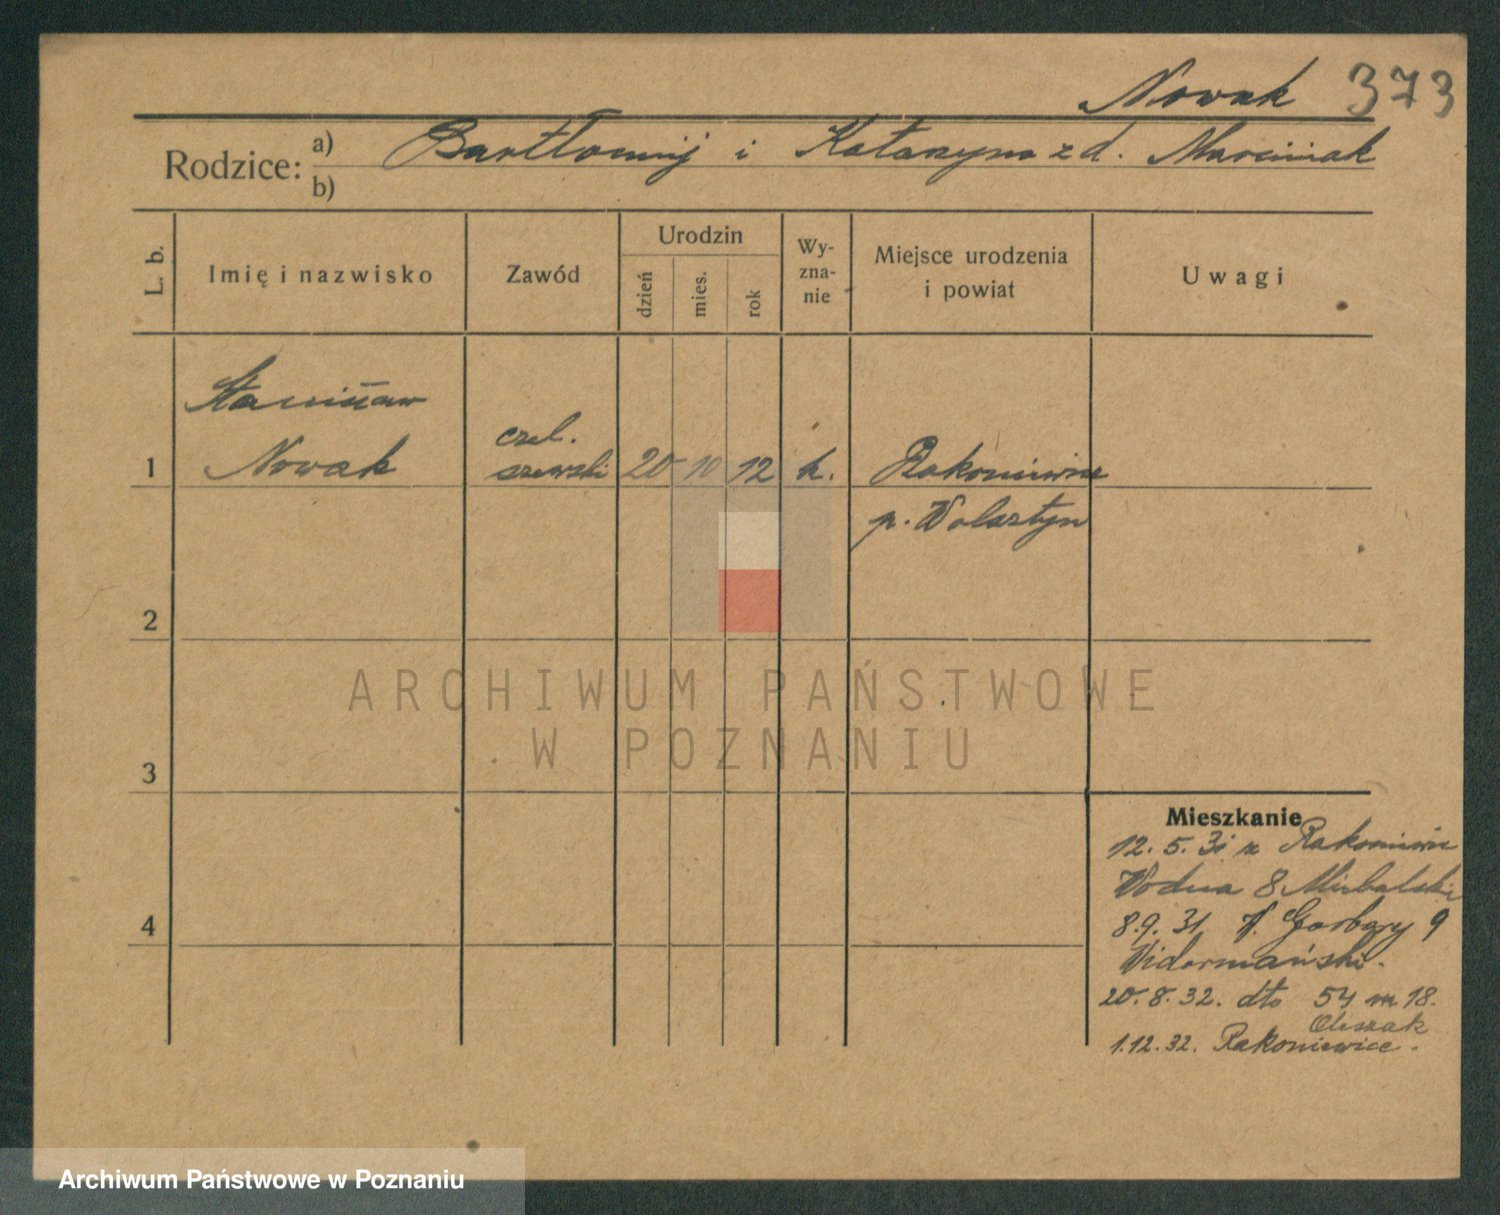 Nowak 373
Rodzice: a) Bartłomiej i Katarzyna z d. Marciniak
b)
L. b. Imię i nazwisko Zawód Urodzin dzień mies. rok Wy-zna-nie Miejsce urodzenia i powiat Uwagi
Stanisław
czel.
1 Nowak szewski 20 10 12 k. Rakoniewice
p. Wolsztyn
2
ARCHIWUM PAŃSTWOWE
W POZNANIU
3
Mieszkanie
12. 5. 31 z Rakoniewic
Wodna 8 Michalski
4
8.9. 31. Garbary 9
Widermański.
20. 8. 32. dto 54 m 18.
Oleszak
1.12.32. Rakoniewice.
Archiwum Państwowe w Poznaniu